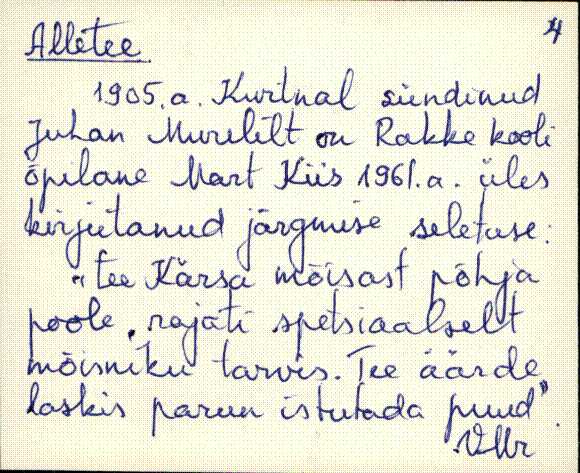 4
Alletee
1905.a. Kurtnal sündinud
Juhan Murelilt on Rakke kooli
õpilane Mart Kiis 1961.a. üles
kirjutanud järgmise seletuse:
"tee Kärsa mõisast põhja
poole, rajati spetsiaalselt
mõisniku tarvis. Tee äärde
laskis parun istutada puud".
VMr